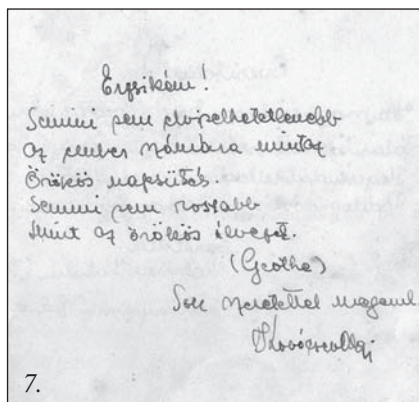 Erzsikém!
Semmi sem elviselhetetlenebb
az ember számára mint az
Örökös napsütés.
Semmi sem rosszabb
Mint az örökös élvezet.
(Geothe)
Sok szeretettel
7.